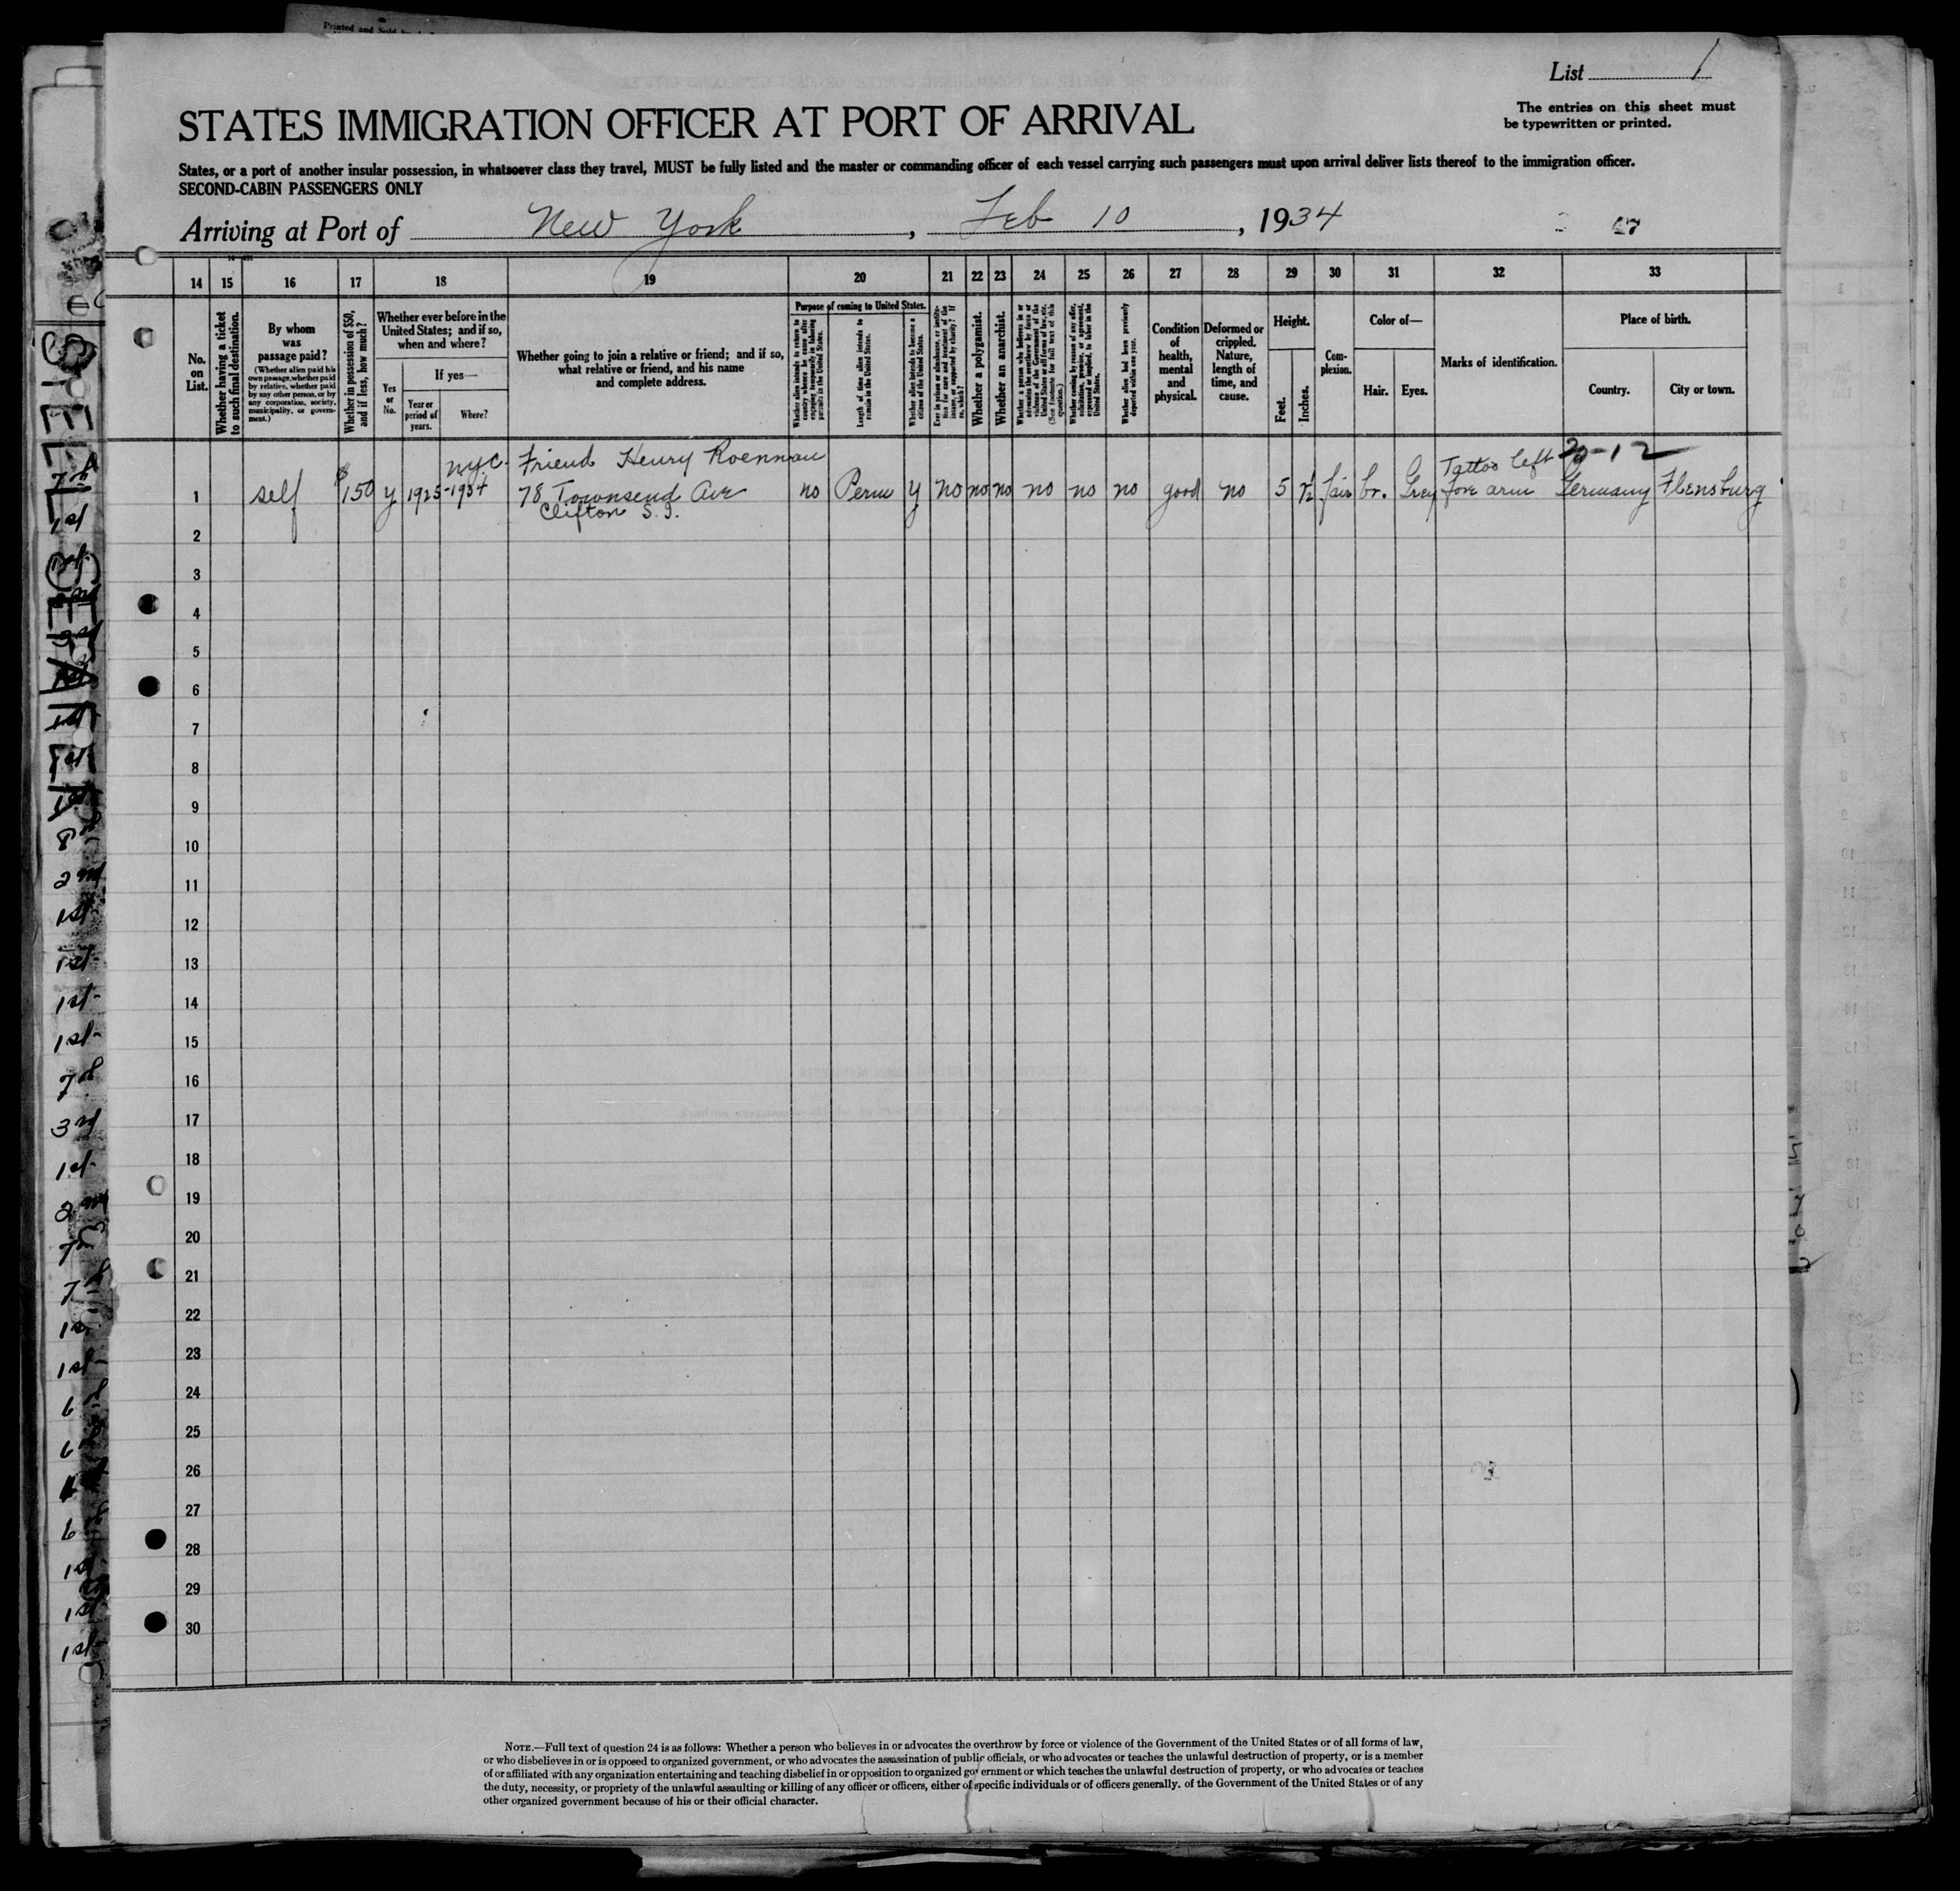 Printed and Sold by
List 1
The entries on this sheet must
be typewritten or printed.
STATES IMMIGRATION OFFICER AT PORT OF ARRIVAL
States, or a port of another insular possession, in whatsoever class they travel, MUST be fully listed and the master or commanding officer of each vessel carrying such passengers must upon arrival deliver lists thereof to the immigration officer.
SECOND-CABIN PASSENGERS ONLY
Arriving at Port of New York, Feb 10, 1934
47
14 15 16 17 18 19 20 21 22 23 24 25 26 27 28 29 30 31 32 33
No. on List.
Whether having a ticket to such final destination.
By whom was passage paid?
(Whether alien paid his own passage, whether paid by relative, whether paid by any other person, or by any corporation, society, municipality, or government.)
Whether in possession of $50, and if less, how much?
Whether ever before in the United States; and if so, when and where?
Yes or No.
If yes—
Year or period of years.
Where?
Whether going to join a relative or friend; and if so, what relative or friend, and his name and complete address.
Purpose of coming to United States.
Whether alien intends to return to country whence he came after engaging temporarily in laboring pursuits in the United States.
Length of time alien intends to remain in the United States.
Whether alien intends to become a citizen of the United States.
Ever in prison or almshouse, or institution for care and treatment of the insane, or supported by charity? If so, which?
Whether a polygamist.
Whether an anarchist.
Whether a person who believes in or advocates the overthrow by force or violence of the Government of the United States or all forms of law, etc. (See footnote for full text of this question.)
Whether coming by reason of any offer, solicitation, promise, or agreement, expressed or implied, to labor in the United States.
Whether alien had been previously deported within one year.
Condition of health, mental and physical.
Deformed or crippled. Nature, length of time, and cause.
Height.
Feet.
Inches.
Com-plexion.
Color of—
Hair.
Eyes.
Marks of identification.
Place of birth.
Country.
City or town.
nyc. Friend Henry Roennau Tattoo left 20-12
1 self $150 y 1925-1934 78 Townsend Ave no Perm y no no no no no no good no 5 7½ fair br. Grey fore arm Germany Flensburg
Clifton S. I.
2
3
4
5
6
7
8
9
10
11
12
13
14
15
16
17
18
19
20
21
22
23
24
25
26
27
28
29
30
NOTE.—Full text of question 24 is as follows: Whether a person who believes in or advocates the overthrow by force or violence of the Government of the United States or of all forms of law,
or who disbelieves in or is opposed to organized government, or who advocates the assassination of public officials, or who advocates or teaches the unlawful destruction of property, or is a member
of or affiliated with any organization entertaining and teaching disbelief in or opposition to organized government or which teaches the unlawful destruction of property, or who advocates or teaches
the duty, necessity, or propriety of the unlawful assaulting or killing of any officer or officers, either of specific individuals or of officers generally. of the Government of the United States or of any
other organized government because of his or their official character.